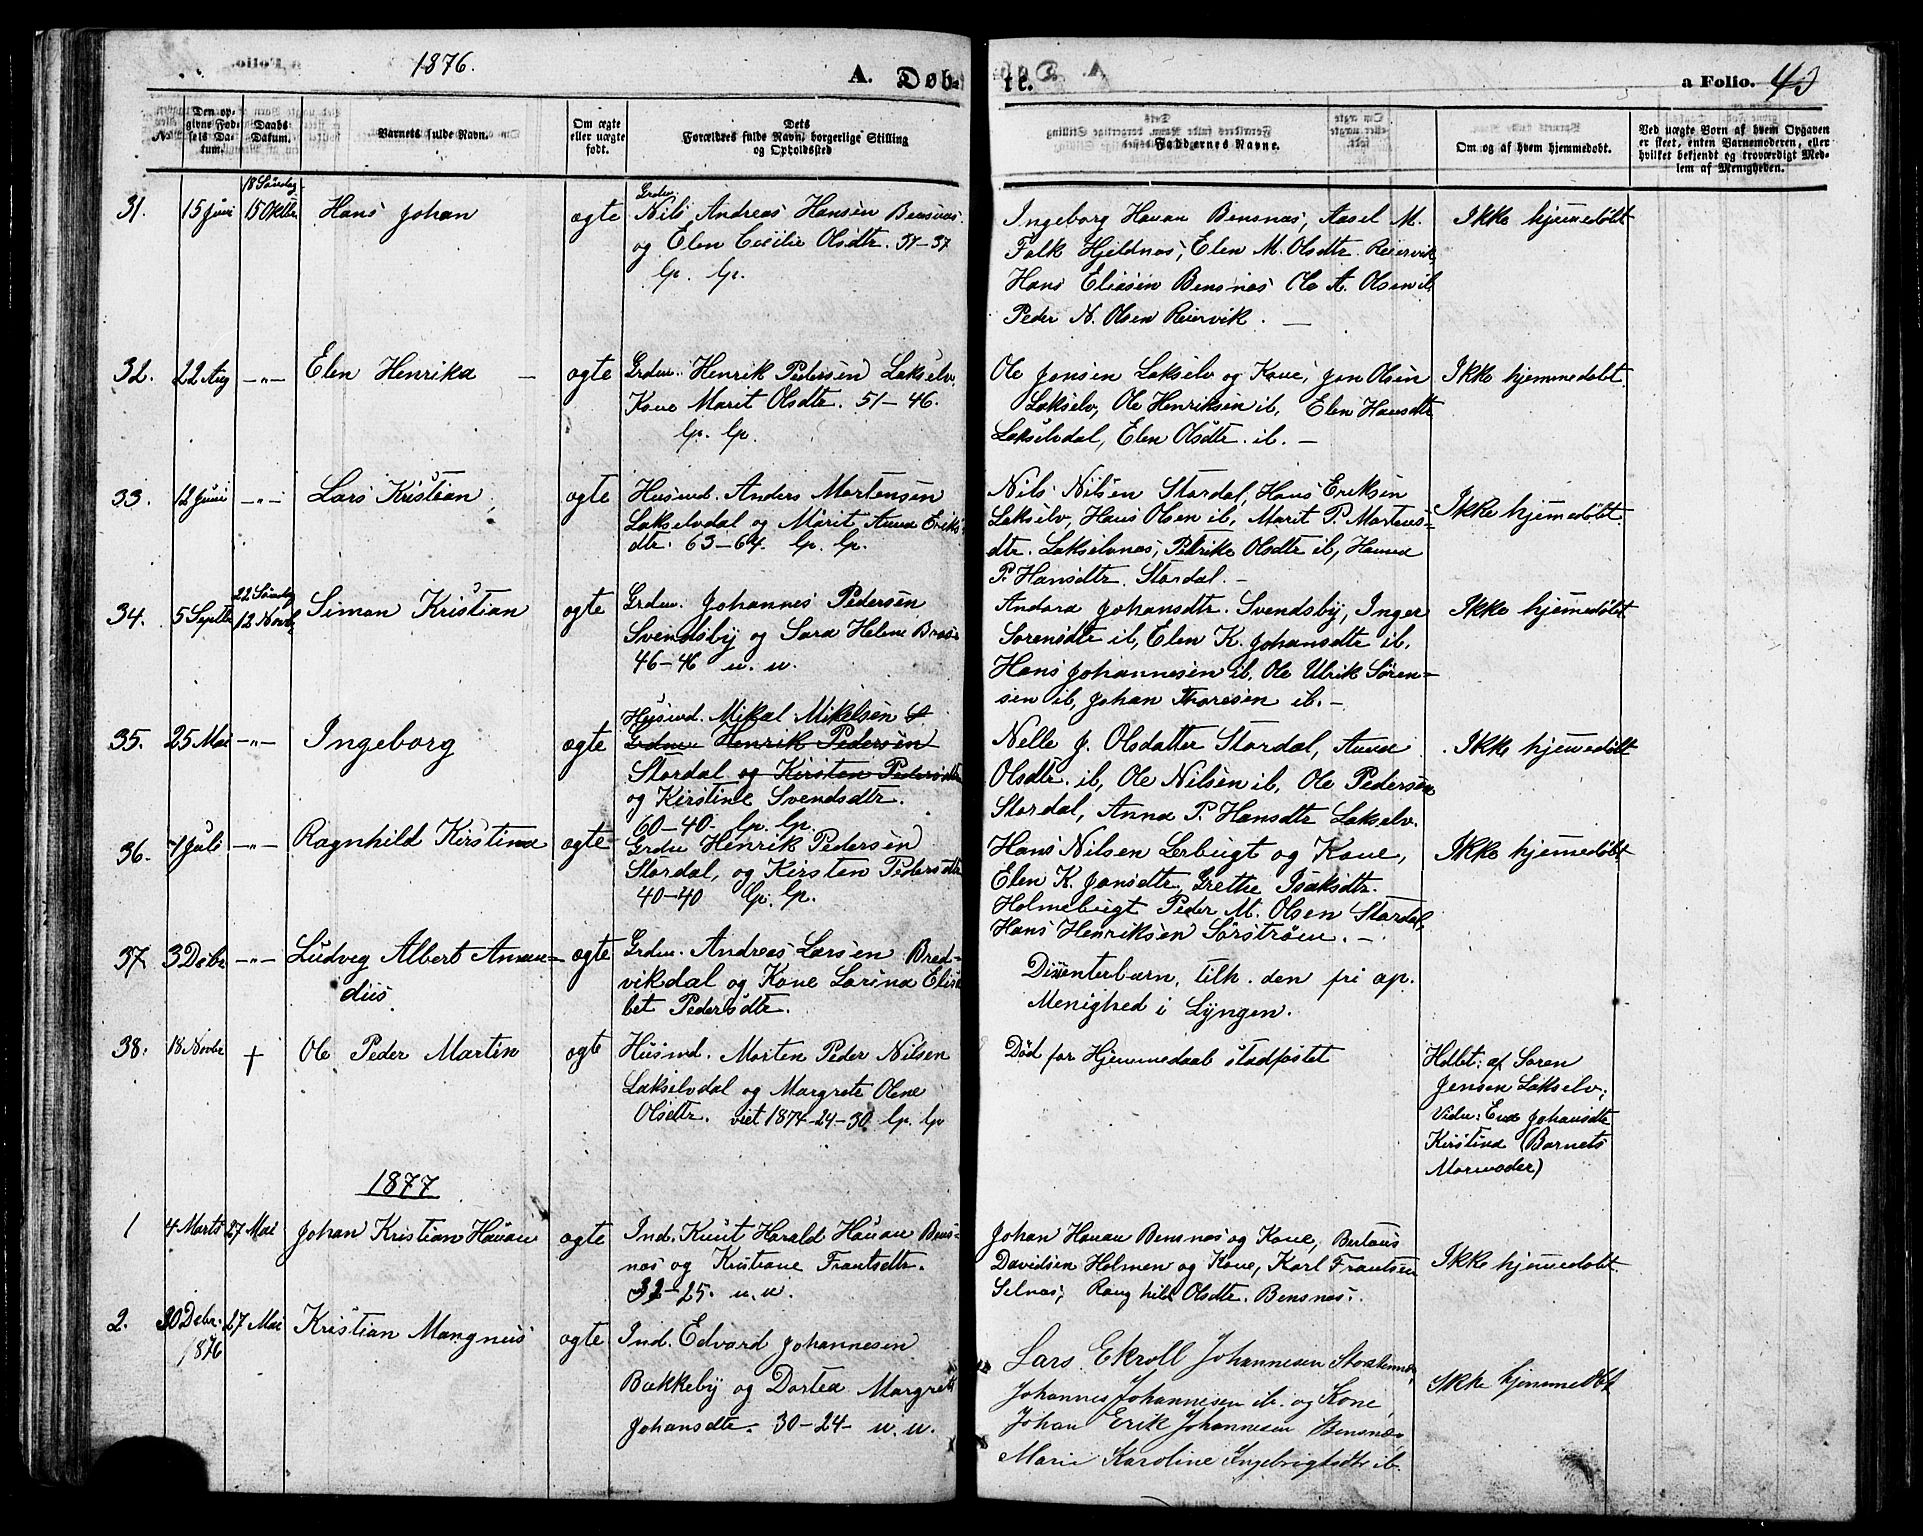 1876.
A. Døb-
te.
a Folio. 43
No.
Den op-
givne Fød-
sels Da-
tum.
Daabs
Datum.
Barnets fulde Navn.
Om ægte
eller uægte
født.
Dets
Forældres fulde Navn, borgerlige Stilling
og Opholdssted
Faddernes Navne.
Om og af hvem hjemmedøbt.
Ved uægte Børn af hvem Opgaven
er skeet, enten Barnemoderen, eller
hvilket bekjendt og troværdigt Med-
lem af Menigheden.
31. 15 Juni 18 Søndag 15 Oktbr Hans Johan ægte
Grdm.
Nils Andreas Hansen Bensnæs
og Elen Cecilie Olsdtr. 31-37
lp. lp.
Ingeborg Havan Bensnæs, Aasel M.
Falk Hjeldnæs, Elen M. Olsdtr. Reiervik
Hans Eliasen Bensnæs Ole A. Olsen ib.
Peder N. Olsen Reiervik. —
Ikke hjemmedøbt
32. 22 Aug —"— Elen Henrika — ægte
Grdm. Henrik Pedersen Lakselv
Kone Marit Olsdtr. 51-46.
lp. lp.
Ole Jensen Lakselv og Kone, Jon Olsen
Lakselv, Ole Henriksen ib, Elen Hansdtr
Lakselvdal, Elen Olsdtr. ib. —
Ikke hjemmedøbt.
33. 12 Juni —"— Lars Kristian ægte
Husmd. Anders Mortensen
Lakselvdal og Marit Anna Eriks
dtr. 63-64. lp. lp.
Nils Nilsen Stordal, Hans Eriksen
Lakselv, Hans Olsen ib, Marit P. Mortens-
dtr. Lakselvnæs, Petrike Olsdtr ib, Hanna
P. Hansdtr. Stordal. —
Ikke hjemmedøbt.
34. 5 Septbr 22 Søndag 12 Novbr Simon Kristian ægte
Grdm. Johannes Pedersen
Svendsby og Sara Helene Bros-
46-46 u. u.
Andora Johansdtr. Svendsby, Inger
Sørensdtr ib, Elen K. Johansdtr ib.
Hans Johannesen ib. Ole Ulrik Søren-
sen ib, Johan Thoresen ib. —
Ikke hjemmedøbt
35. 25 Mai —"— Ingeborg ægte
Husmd. Mikal Mikelsen St
Grdm. Henrik Pedersen
Stordal og Kirsten Pedersdtr
og Kirstine Svendsdtr.
60-40. lp. lp.
Nelle J. Olsdatter Stordal, Anna
Olsdtr. ib, Ole Nilsen ib, Ole Pedersen
Stordal, Anna P. Hansdtr Lakselv.
Ikke hjemmedøbt
36. 7 Juli —"— Ragnhild Kirstina ægte
Grdm Henrik Pedersen
Stordal, og Kirsten Pedersdtr
40-40 lp. lp.
Hans Nilsen Lerbugt og Kone,
Elen K. Jonsdtr, Grethe Isaksdtr.
Holmebugt Peder M. Olsen Stordal,
Hans Henriksen Sørstrøm. —
Ikke hjemmedøbt
37. 3 Debr —"— Ludvig Albert Aman-
dus ægte
Grdm. Andreas Larsen Bred-
vikdal og Kone Larina Elisa
bet Pedersdtr.
Disenterbarn, tilh. den fri ap.
Menighed i Lyngen.
38. 18 Novbr † Ole Peder Martin ægte
Husmd. Morten Peder Nilsen
Lakselvdal og Margrete Olene
Olsdtr. viet 1874-24-30 lp. lp
Død før Hjemmedaab stadfæstet
Hdbt: af Søren
Jensen Lakselv;
Vidn: Eva Johansdtr
Kirstina (Barnets
Mormoder)
1877
1 4 Marts 27 Mai Johan Kristian Havan ægte
Ind. Knut Harald Havan Bens-
næs og Kristiane Frantsdtr.
32-25. u. u.
Johan Havan Bensnæs og Kone, Bertæus
Davidsen Holmen og Kone, Karl Frantsen
Selnæs, Rang hild Olsdtr. Bensnæs.
Ikke hjemmedøbt
2. 30 Debr. 1876 27 Mai Kristian Mangnus ægte
Ind. Edvard Johannesen
Bakkeby og Dortea Margret
Johansdtr. 30-24- u. u.
Lars Ekroll Johannesen Storstennes,
Johannes Johannesen ib. og Kone,
Johan Erik Johannesen Bensnæs,
Marie Karoline Ingebrigtsdtr ib.
Ikke hjemmedøbt